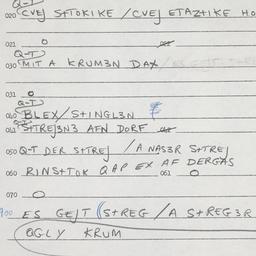 Q-T
020 CVEJ STTOKIKE / CVEJ ETAZTIKE HO
021 O
Q-T
030 MIT A KRUM3N DAX
031 O
Q-T
040 BLEX / STINGL3N
041 STREJ3N3 AFN DORF
050 Q-T DER STREJ / A NAS3R STREJ
060 RINSTTOK QAP EX AF DERGAS 061 O
070 O
900 ES GEJT (STREG / A STREG3R
QGLY KRUM